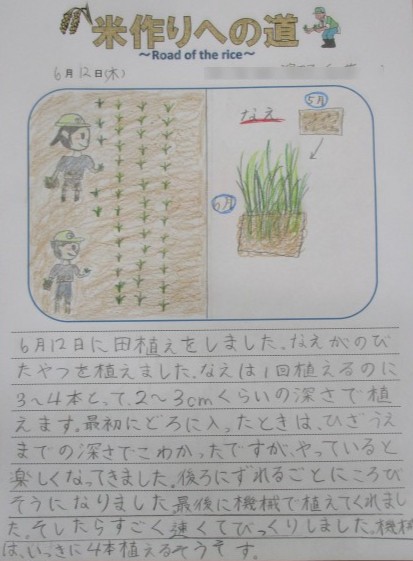 米作りへの道
～Road of the rice～
6月12日(木)
なえ
5月
6月
6月12日に田植えをしました。なえがのび
たやつを植えました。なえは1回植えるのに
3～4本とって、2～3cmくらいの深さで植
えます。最初にどろに入ったときは、ひざうえ
までの深さでこわかったですが、やっていると
楽しくなってきました。後ろにずれるごとにころび
そうになりました。最後に機械で植えてくれまし
た。そしたらすごく速くてびっくりしました。機械
は、いっきに4本植えるそうです。